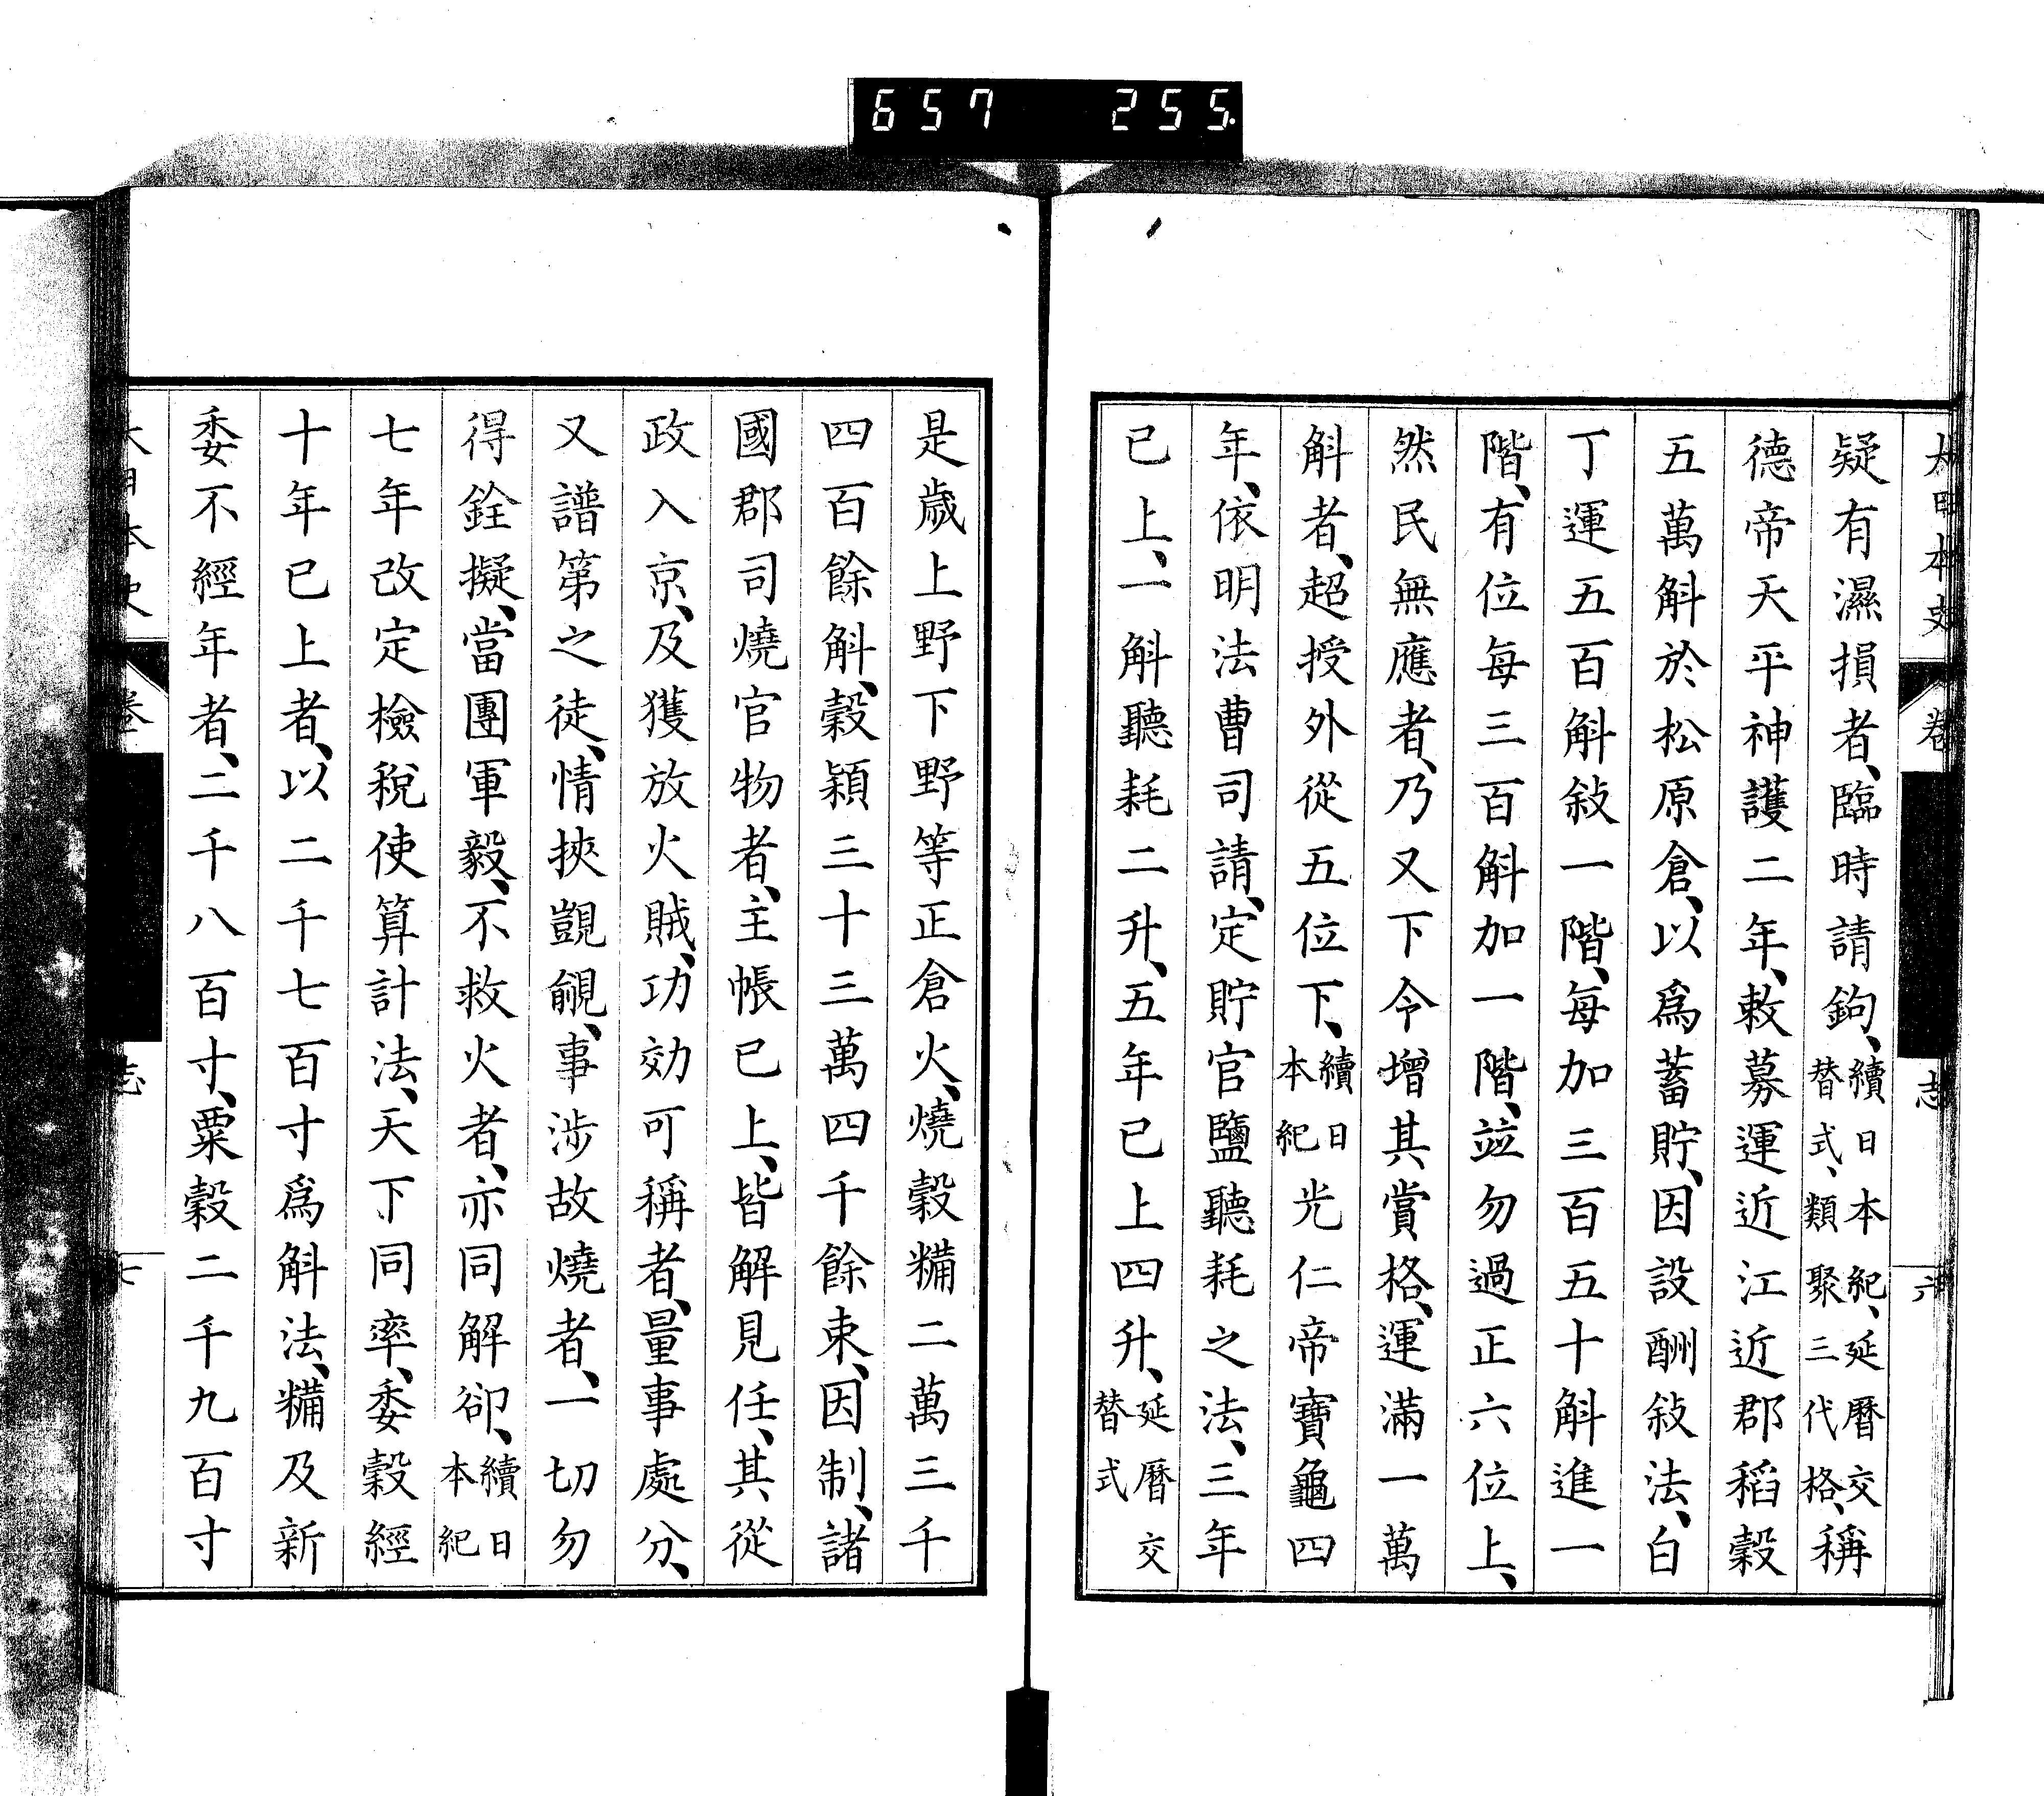 657 255
大日本史 卷 志 六
疑有濕損者、臨時請鉤、續日本紀、延曆交替式、類聚三代格、稱
德帝天平神護二年、敕募運近江近郡稻穀
五萬斛於松原倉、以爲蓄貯、因設酬敍法、白
丁運五百斛敍一階、每加三百五十斛進一
階、有位每三百斛加一階、竝勿過正六位上、
然民無應者、乃又下令增其賞格、運滿一萬
斛者、超授外從五位下、續日本紀光仁帝寶龜四
年、依明法曹司請、定貯官鹽聽耗之法、三年
已上、一斛聽耗二升、五年已上四升、延曆交替式
是歲上野下野等正倉火、燒穀糒二萬三千
四百餘斛、穀穎三十三萬四千餘束、因制、諸
國郡司燒官物者、主帳已上、皆解見任、其從
政入京、及獲放火賊、功効可稱者、量事處分、
又譜第之徒、情挾覬覦、事涉故燒者、一切勿
得銓擬、當團軍毅、不救火者、亦同解卻、續日本紀
七年改定檢稅使算計法、天下同率、委穀經
十年已上者、以二千七百寸爲斛法、糒及新
委不經年者、二千八百寸、粟穀二千九百寸
大日本史 卷 志 七